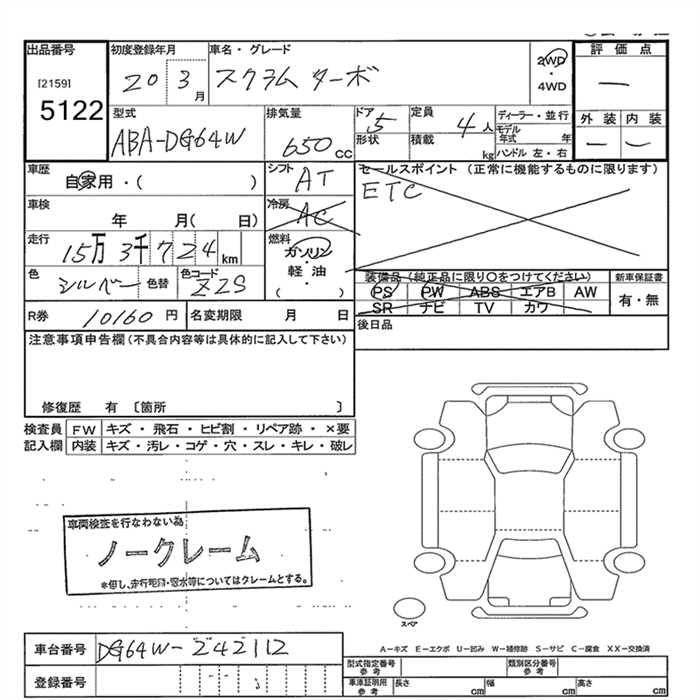 出品番号 初度登録年月 車名・グレード 評価点
[2159] 20 3月 スクラム ターボ 2WD ・ 4WD —
5122
型式 排気量 ドア形状 定員 ディーラー・並行 外装 内装
ABA-DG64W 650cc 5 4人 モデル年式 年 — —
積載 kg ハンドル 左・右
車歴 シフト セールスポイント (正常に機能するものに限ります)
自家用・( ) AT ETC
車検 冷房
年 月( 日) AC
走行 燃料
15万3千724km ガソリン・軽油( )
色 シルバー 色替 色コード Z2S
装備品 (純正品に限り○をつけてください) 新車保証書
PS PW ABS エアB AW 有・無
SR ナビ TV カワ
R券 10160円 名変期限 月 日 後日品
注意事項申告欄(不具合内容等は具体的に記入して下さい)
修復歴 有 〔箇所 〕
検査員記入欄 FW キズ・飛石・ヒビ割・リペア跡・×要
内装 キズ・汚レ・コゲ・穴・スレ・キレ・破レ
車両検査を行なわない為
ノークレーム
※但し、走行距離・冠水等についてはクレームとする。
スペア
A-キズ E-エクボ U-凹み W-補修跡 S-サビ C-腐食 XX-交換済
車台番号 DG64W-242112
型式指定番号 参考 類別区分番号 参考
登録番号
車庫証明用 参考 長さ cm 幅 cm 高さ cm